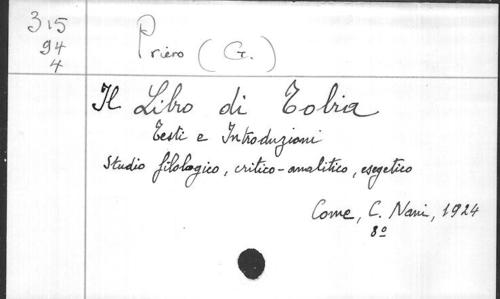 315
94
4
Priero (G.)
Il Libro di Tobia
Testi e Introduzioni
Studio filologico, critico-analitico, esegetico
Come, C. Nani, 1924
8º